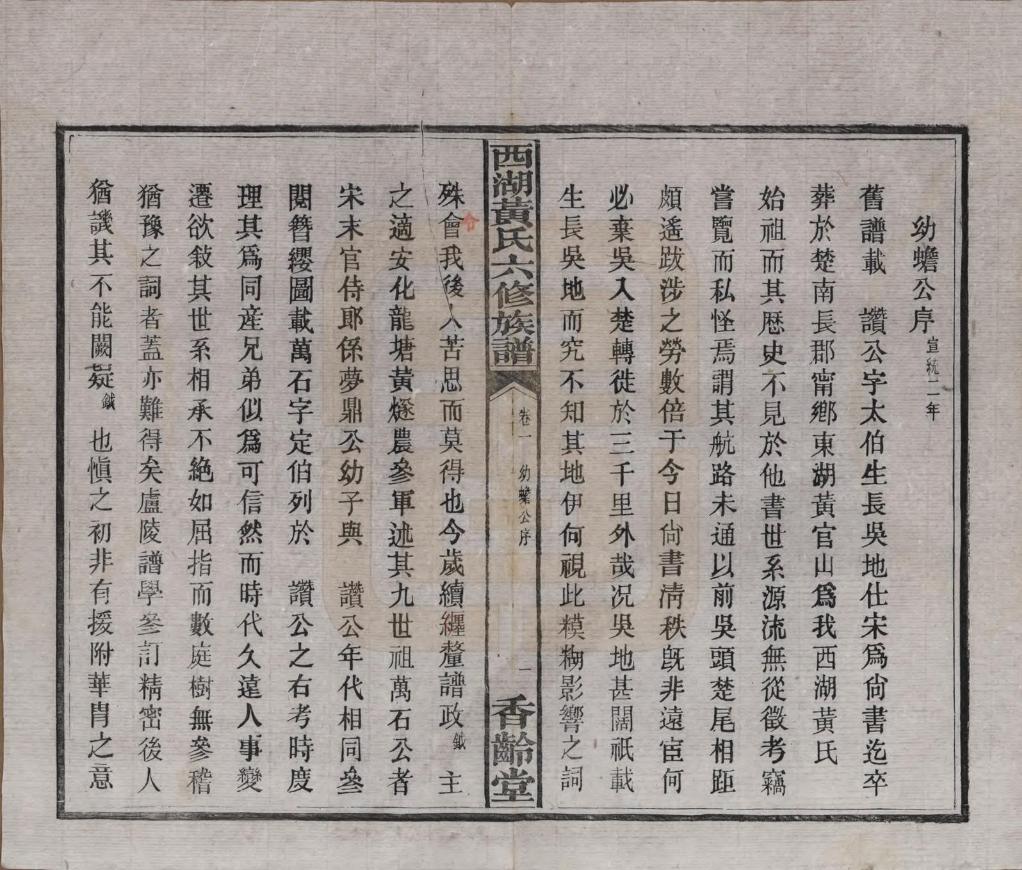 幼蟾公序宣統二年
舊譜載　讚公字太伯生長吳地仕宋爲尙書迄卒
葬於楚南長郡甯鄉東湖黃官山爲我西湖黃氏
始祖而其歷史不見於他書世系源流無從徵考竊
嘗覽而私怪焉謂其航路未通以前吳頭楚尾相距
頗遙跋涉之勞數倍于今日尙書清秩旣非遠宦何
必棄吳入楚轉徙於三千里外哉况吳地甚闊祇載
生長吳地而究不知其地伊何視此糢糊影響之詞
西湖黃氏六修族譜
卷一　幼蟾公序
一
香齡堂
殊會我後人苦思而莫得也今歲續纏釐譜政鉞主
令
之適安化龍塘黃燧農參軍述其九世祖萬石公者
宋末官侍郎係夢鼎公幼子與　讚公年代相同參
閱簪纓圖載萬石字定伯列於　讚公之右考時度
理其爲同産兄弟似爲可信然而時代久遠人事變
遷欲敍其世系相承不絕如屈指而數庭樹無參稽
猶豫之詞者蓋亦難得矣盧陵譜學參訂精密後人
猶譏其不能闕疑鉞也愼之初非有援附華胄之意